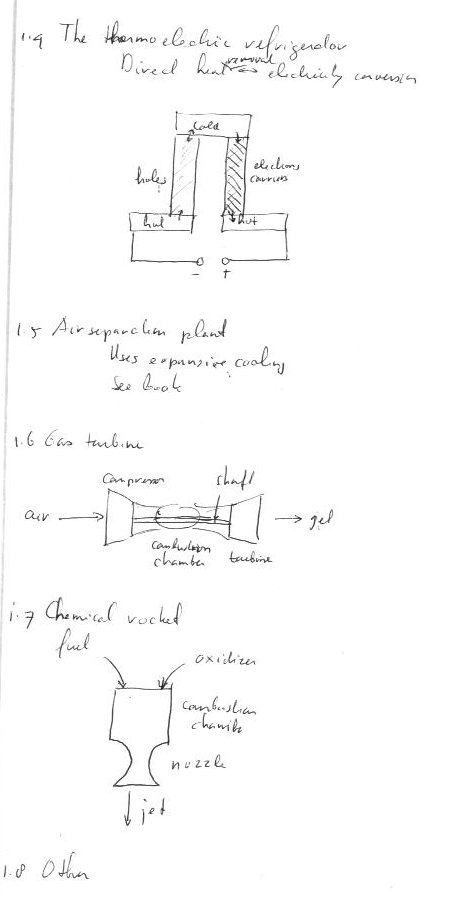 1.4 The thermoelectric refrigerator
Direct heat removal ⇔ electricity conversion
Cold
holes
electrons
carriers
hot
hot
-
+
1.5 Air separation plant
Uses expansive cooling
See book
1.6 Gas turbine
Compressor
shaft
air
jet
combustion
chamber
turbine
1.7 Chemical rocket
fuel
oxidizer
combustion
chamber
nozzle
jet
1.8 Other